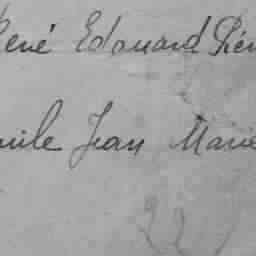 René Edouard Pier
mile Jean Marie